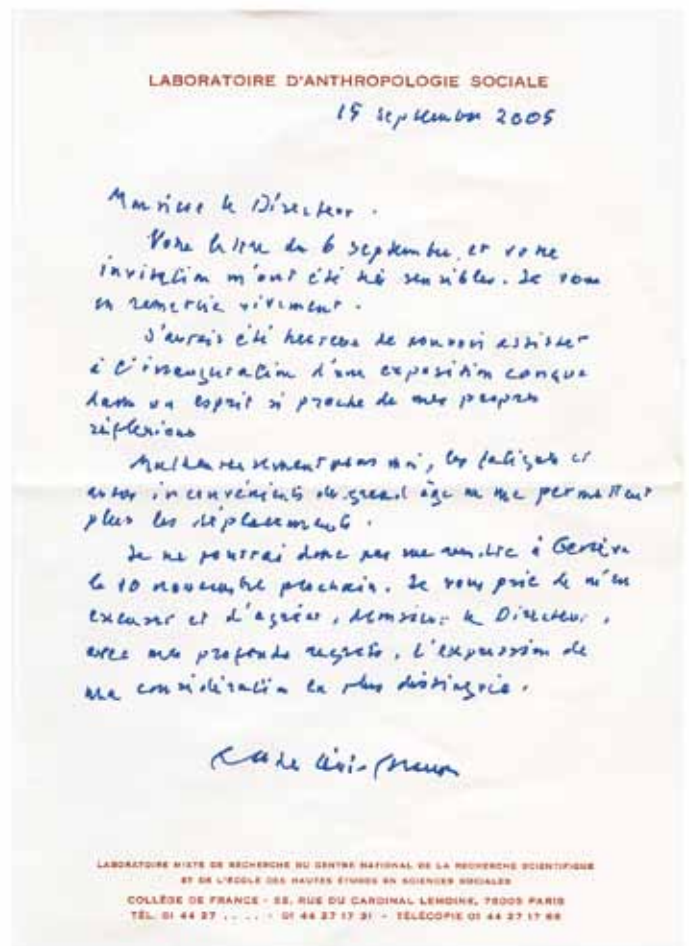 LABORATOIRE D'ANTHROPOLOGIE SOCIALE
15 septembre 2005
Monsieur le Directeur.
Votre lettre du 6 septembre, et votre
invitation m'ont été très sensibles. Je vous
en remercie vivement.
J'aurais été heureux de pouvoir assister
à l'inauguration d'une exposition conçue
dans un esprit si proche de mes propres
réflexions
Malheureusement pour moi, les fatigues et
autres inconvénients du grand âge ne me permettent
plus les déplacements.
Je ne pourrai donc pas me rendre à Genève
le 10 novembre prochain. Je vous prie de m'en
excuser et d'agréer, Monsieur le Directeur,
avec mes profonds regrets, l'expression de
ma considération la plus distinguée.
Claude Lévi-Strauss
LABORATOIRE MIXTE DE RECHERCHE DU CENTRE NATIONAL DE LA RECHERCHE SCIENTIFIQUE
ET DE L'ÉCOLE DES HAUTES ÉTUDES EN SCIENCES SOCIALES
COLLÈGE DE FRANCE - 52, RUE DU CARDINAL LEMOINE, 75005 PARIS
TÉL. 01 44 27 . . . . - 01 44 27 17 31 - TÉLÉCOPIE 01 44 27 17 66